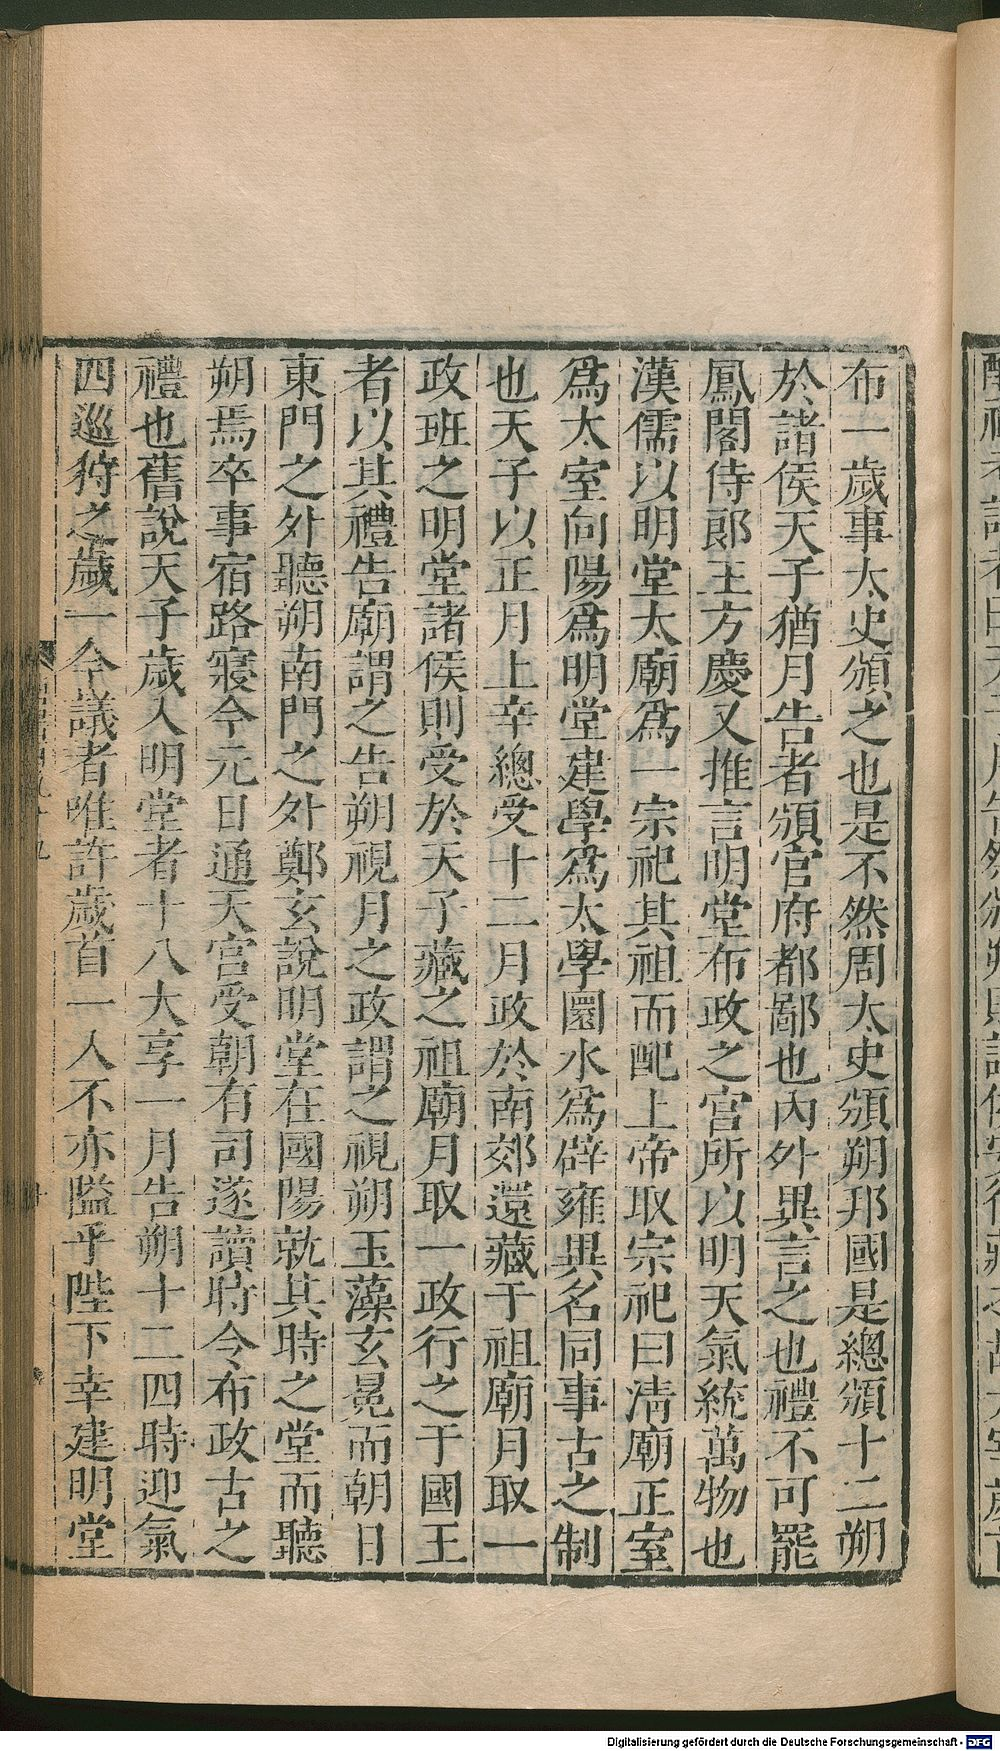 布一歲事太史頒之也是不然周太史頒朔邦國是總頒十二朔
於諸侯天子猶月告者頒官府都鄙也內外異言之也禮不可罷
鳳閣侍郎王方慶又推言明堂布政之宮所以明天氣統萬物也
漢儒以明堂太廟爲一宗祀其祖而配上帝取宗祀曰淸廟正室
爲太室向陽爲明堂建學爲太學圜水爲辟雍異名同事古之制
也天子以正月上辛總受十二月政於南郊還藏于祖廟月取一
政班之明堂諸侯則受於天子藏之祖廟月取一政行之于國王
者以其禮告廟謂之告朔視月之政謂之視朔玉藻玄冕而朝日
東門之外聽朔南門之外鄭玄說明堂在國陽就其時之堂而聽
朔焉卒事宿路寢今元日通天宮受朝有司遂讀時令布政古之
禮也舊說天子歲入明堂者十八大享一月告朔十二四時迎氣
四巡狩之歲一今議者唯許歲首一入不亦隘乎陛下幸建明堂
Digitalisierung gefördert durch die Deutsche Forschungsgemeinschaft - DFG